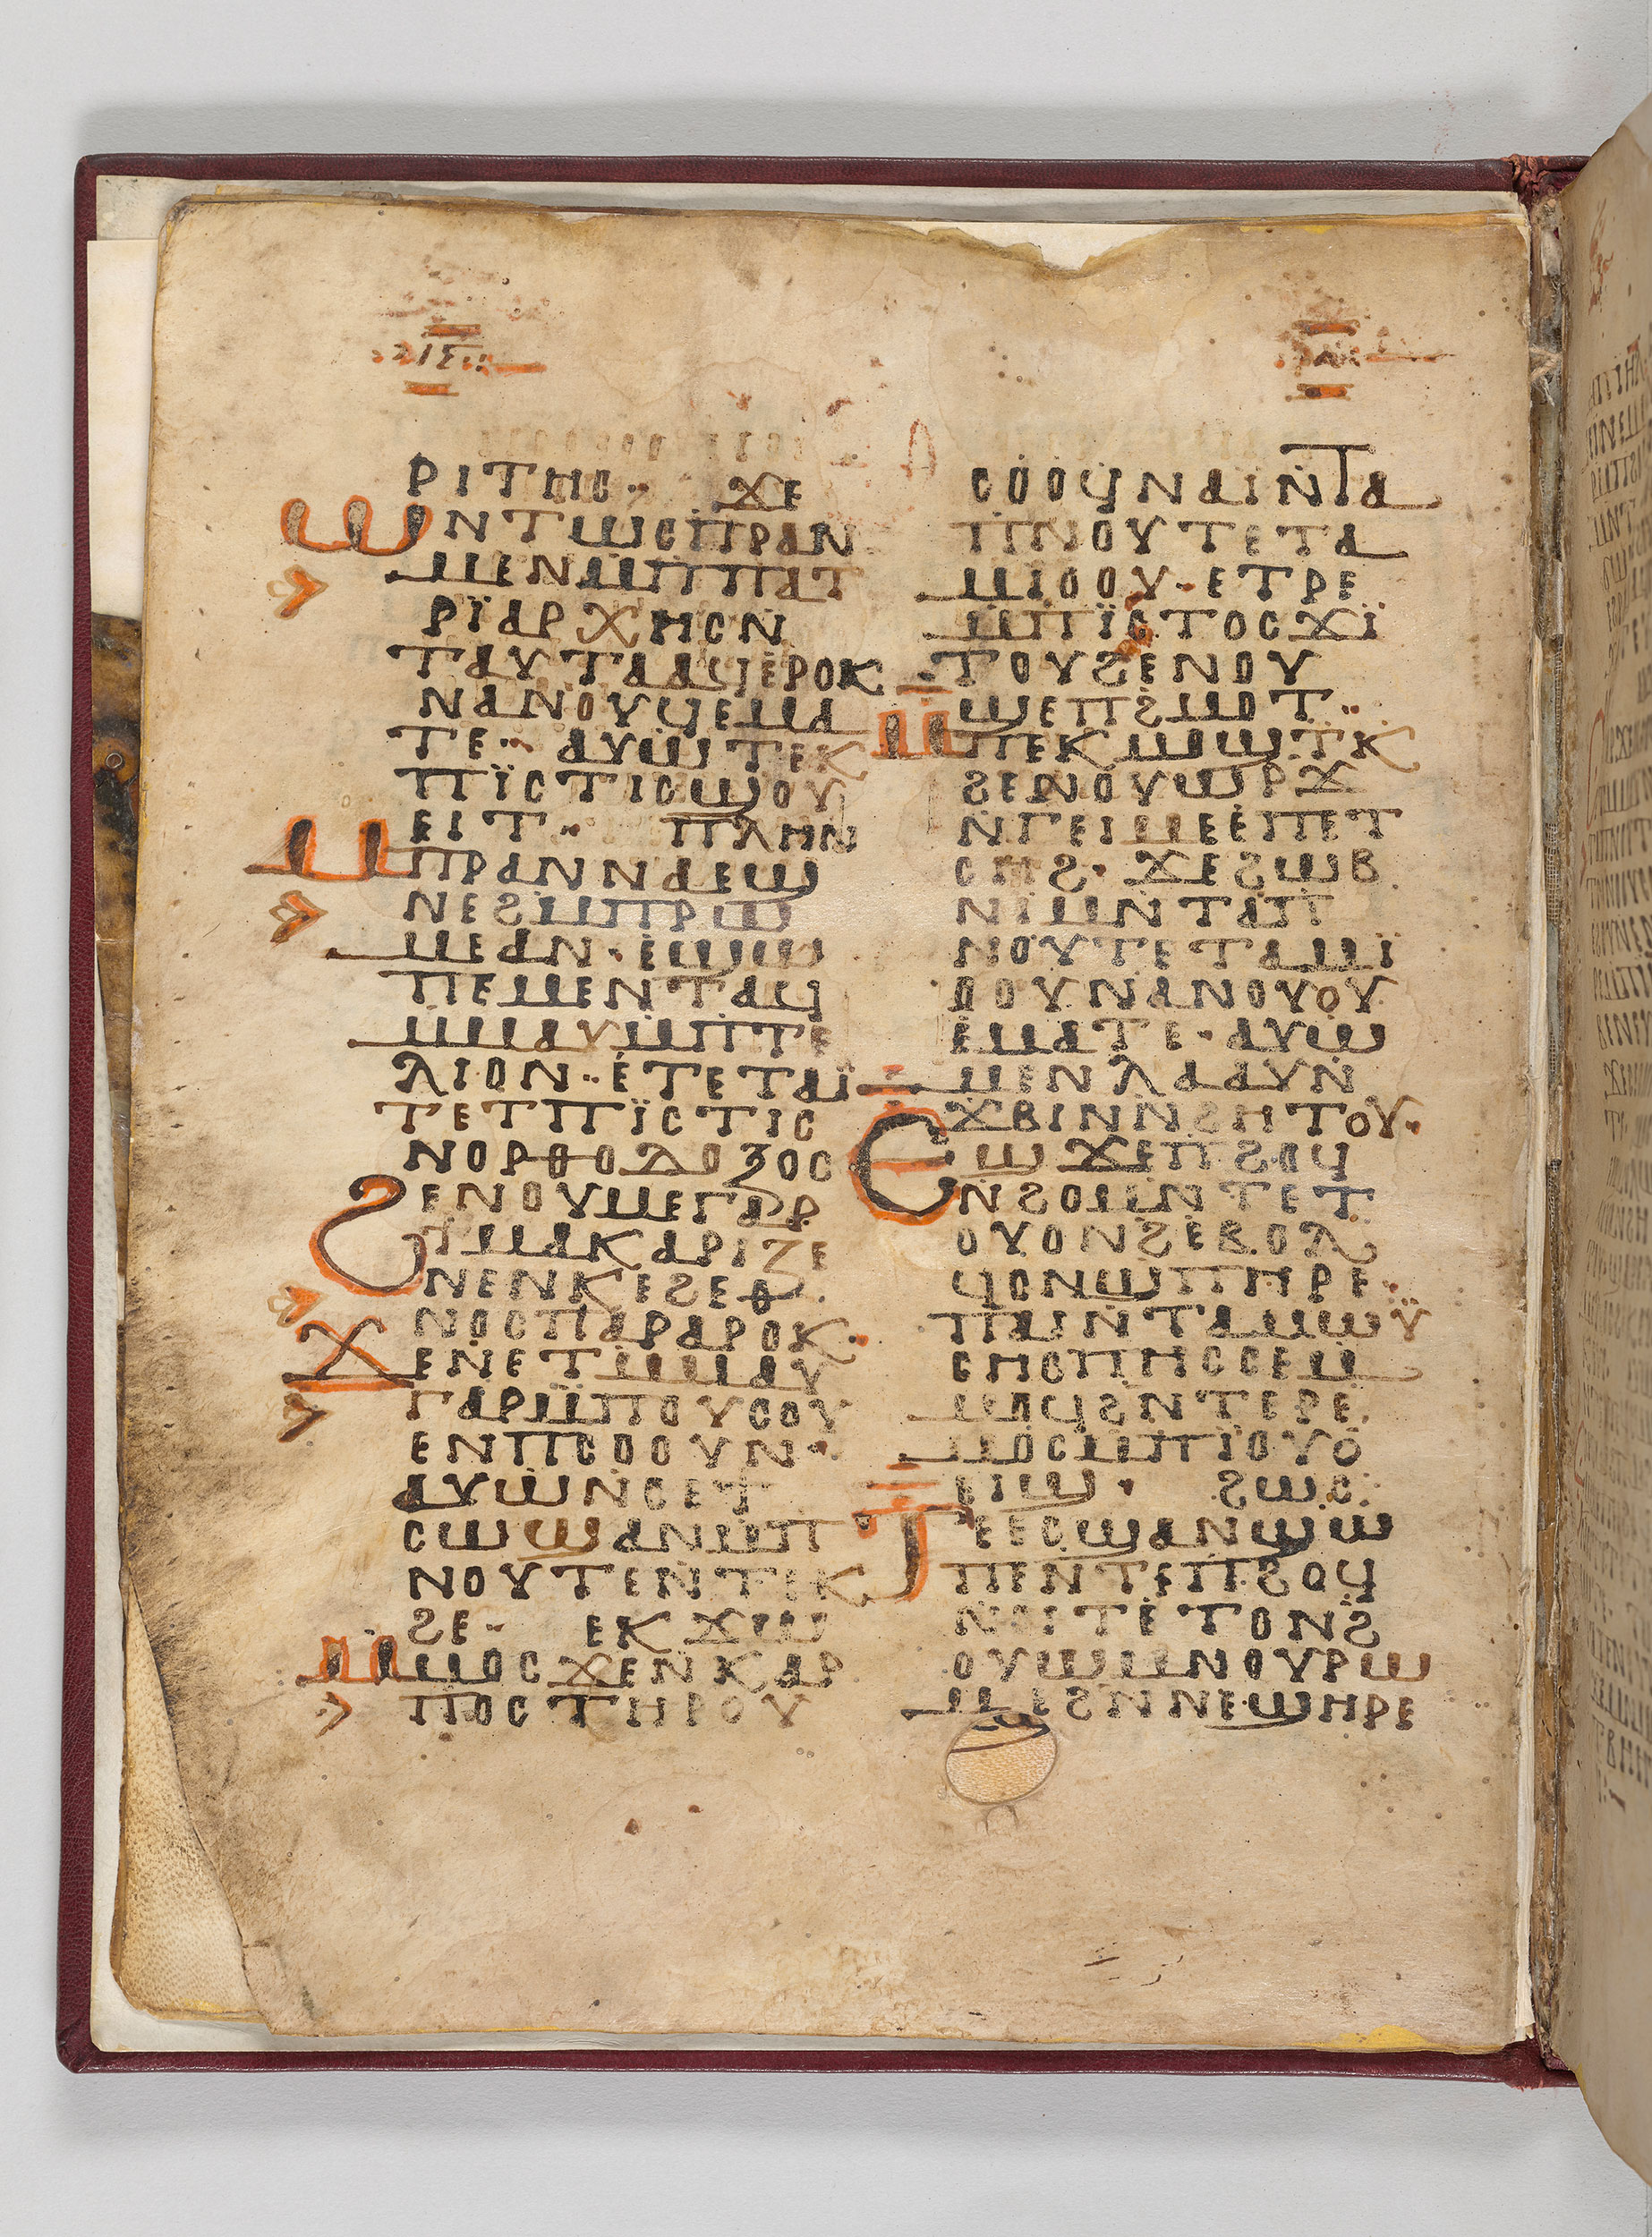 ⲣⲓⲧⲏⲥ·· ϫⲉ
ⲱⲛⲧⲱⲥⲡⲣⲁⲛ
ⲙⲉⲛⲙⲡⲡⲁⲧ
ⲣⲓ̈ⲁⲣⲭⲏⲥⲛ̀
ⲧⲁⲩⲧⲁⲁϥⲉⲣⲟⲕ
ⲛⲁⲛⲟⲩϥⲉⲙⲁ
ⲧⲉ·· ⲁⲩⲱⲧⲉⲕ
ⲡⲓ̈ⲥⲧⲓⲥϣⲟⲩ
ⲉⲓⲧ·· ⲡⲗⲏⲛ
ⲙⲡⲣⲁⲛⲛⲁⲉϣ
ⲛⲉϩⲙⲡⲣⲱ
ⲙⲉⲁⲛ·ⲉϣⲱ
ⲡⲉⲙⲉⲛⲧⲁϥ
ⲙⲙⲁⲩⲙⲡⲧⲉ
ⲗⲓⲟⲛ··ⲉ̀ⲧⲉⲧⲁⲓ̈
ⲧⲉⲧⲡⲓ̈ⲥⲧⲓⲥ
ⲛⲟⲣⲑⲟⲇⲟⲝⲟⲥ
ϩⲉⲛⲟⲩⲙⲉⲅⲁⲣ
ϯⲙⲁⲕⲁⲣⲓⲍⲉ
ⲛⲉⲛⲕⲉϩⲉⲑ
ⲛⲟⲥⲡⲁⲣⲁⲣⲟⲕ·
ϫⲉⲛⲉⲧⲙⲙⲁⲩ
ⲅⲁⲣⲙ̈ⲡⲟⲩⲥⲟⲩ
ⲉⲛⲡⲥⲟⲟⲩⲛ·
ⲁⲩⲱⲛ̀ⲥⲉⲧ
ⲥⲱϣⲁⲛⲙⲡ
ⲛⲟⲩⲧⲉⲛⲧⲉⲕ
ϩⲉ·· ⲉⲕϫⲱ
ⲙⲙⲟⲥϫⲉⲛⲕⲁⲣ
ⲡⲟⲥⲧⲏⲣⲟⲩ
ⲥⲟⲟⲩⲛⲁⲓ̈ⲛ̀ⲧⲁ
ⲡⲛⲟⲩⲧⲉⲧⲁ
ⲙⲓⲟⲟⲩ·ⲉⲧⲣⲉ
ⲙⲡⲓ̈ⲥⲧⲟⲥϫⲓ̈
ⲧⲟⲩϩⲉⲛⲟⲩ
ϣⲉⲡϩⲙⲟⲧ··
ⲙⲡⲉⲕⲙⲟϣⲧⲕ
ϩⲉⲛⲟⲩⲱⲣϫ
ⲛⲅⲉⲓⲙⲉⲉ̀ⲡⲉⲧ
ⲥⲏϩ·ϫⲉϩⲱⲃ
ⲛⲓⲙⲛⲧⲁⲡ
ⲛⲟⲩⲧⲉⲧⲁⲙⲓ̈
ⲟⲟⲩⲛⲁⲛⲟⲩⲟⲩ
ⲉⲙⲁⲧⲉ·ⲁⲩⲱ
ⲙⲉⲛⲗⲁⲁⲩⲛ̀
ϫⲃⲓⲛⲛ̀ϩⲏⲧⲟⲩ·
ⲉϣϫⲉⲡϩⲟϥ
ⲛ̀ϩⲟⲙⲛⲧⲉⲧ
ⲟⲩⲟⲛϩⲉⲃⲟⲗ
ϥⲟⲛϣⲡⲏⲣⲉ·
ⲡⲁⲓⲛⲧⲁⲙⲱⲩ̈
ⲥⲏⲥⲡⲏⲥⲥⲉⲙ
ⲙⲟϥϩⲛⲧⲉⲣⲉ
ⲙⲟⲥⲙⲡⲓⲟⲩⲟ
ⲉⲓϣ· ϩⲱⲥ
ⲧⲉⲉⲥϣⲁⲛϣⲱ
ⲡⲉⲛⲧⲉⲡϩⲟϥ
ⲛⲉⲓⲧⲉⲧⲟⲛϩ
ⲟⲩⲱⲙⲛⲟⲩⲣⲱ
ⲙⲉϩⲛⲛⲉϣⲏⲣⲉ